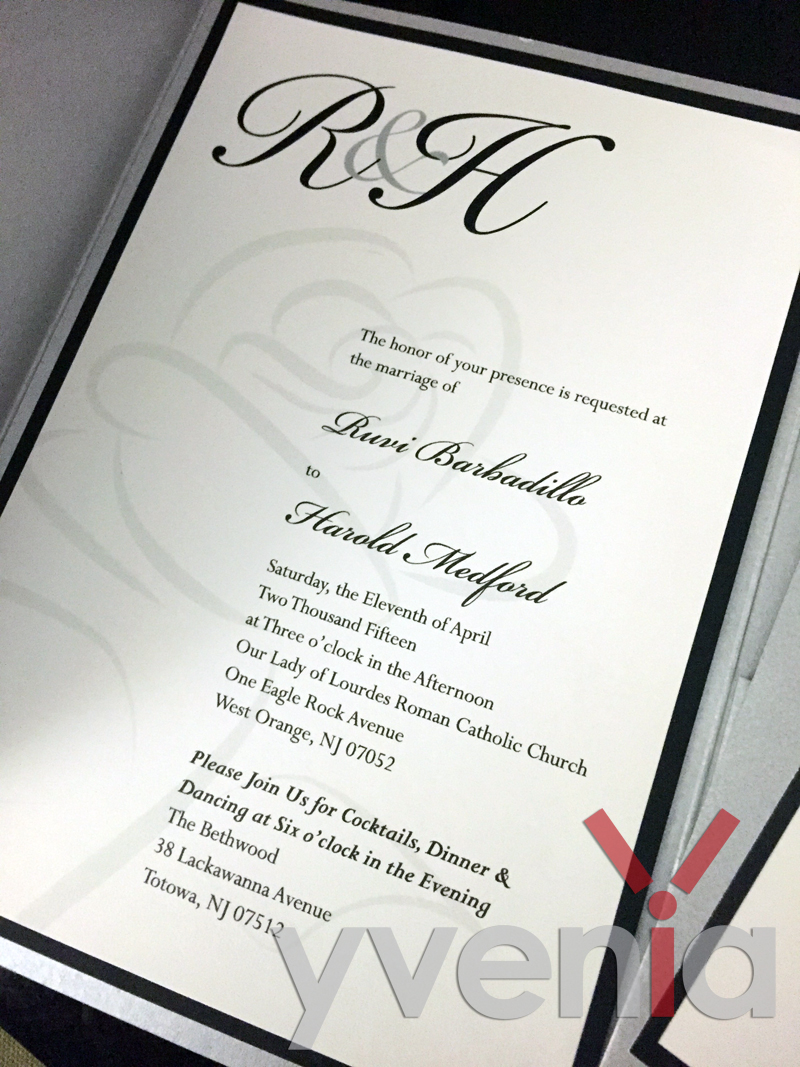 R&H
The honor of your presence is requested at
the marriage of
Ruvi Barbadillo
to
Harold Medford
Saturday, the Eleventh of April
Two Thousand Fifteen
at Three o'clock in the Afternoon
Our Lady of Lourdes Roman Catholic Church
One Eagle Rock Avenue
West Orange, NJ 07052
Please Join Us for Cocktails, Dinner &
Dancing at Six o'clock in the Evening
The Bethwood
38 Lackawanna Avenue
Totowa, NJ 07512
yvenia